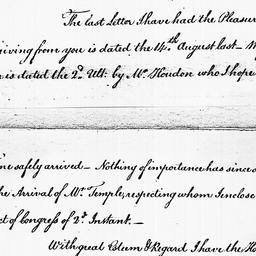 The last Letter I have had the Pleasur
iving from you is dated the 14.th August last — M
r is dated the 2.d Ult: by Mr. Houdon who I hope
me safely arrived — Nothing of importance has since o
he Arrival of Mr. Temple, respecting whom I enclose
ct of Congress of 2.d Instant. —
With great Esteem & Regard I have the Ho